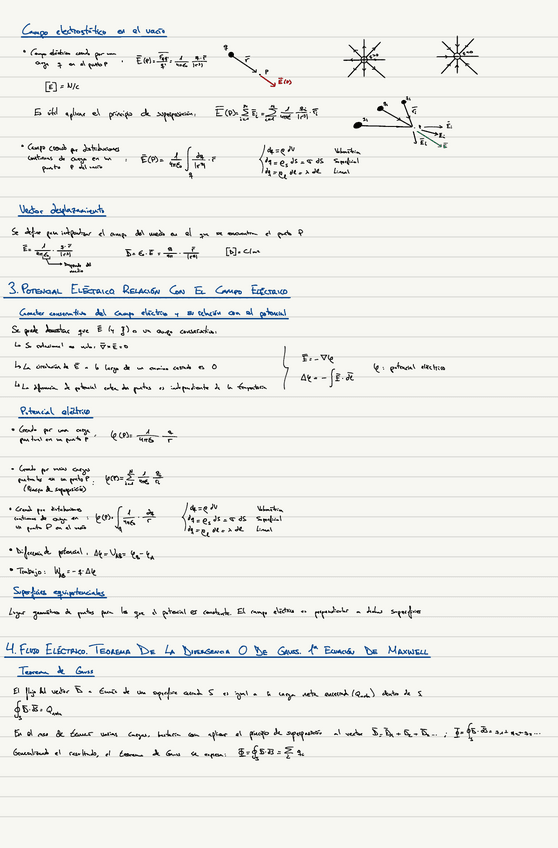 Campo electrostático en el vacío
• Campo eléctrico creado por una carga q en el punto P : E̅(P) = F̅q/q' = 1/4πε₀ · q·r̅/|r|³
[E] = N/C
Es útil aplicar el principio de superposición: E̅(P) = Σ E̅i = Σ 1/4πε₀ · qi/|ri|³ · r̅i
• Campo creado por distribuciones continuas de carga en un punto P del vacío : E̅(P) = 1/4πε₀ ∫ dq/|r|³ · r̅
dq = ρ dV Volumétrica
dq = ρs dS = σ dS Superficial
dq = ρl dl = λ dl Lineal
Vector desplazamiento
Se define para independizar el campo del medio en el que se encuentra el punto P
E̅ = 1/4πε₀ · q·r̅/|r|³
Depende del medio
D̅ = ε₀ · E̅ = q/4π · r̅/|r|³
[D] = C/m
3. POTENCIAL ELÉCTRICO RELACIÓN CON EL CAMPO ELÉCTRICO
Carácter conservativo del campo eléctrico y su relación con el potencial
Se puede demostrar que E̅ es un campo conservativo:
↳ Su rotacional es nulo: ∇×E̅ = 0
↳ La circulación de E̅ a lo largo de un camino cerrado es 0
↳ La diferencia de potencial entre dos puntos es independiente de la trayectoria
E̅ = -∇φ
Δφ = -∫E̅·dl̅
φ: potencial eléctrico
Potencial eléctrico
• Creado por una carga puntual en un punto P : φ(P) = 1/4πε₀ · q/r
• Creado por varias cargas puntuales en un punto P : φ(P) = Σ 1/4πε₀ · qi/ri
(Principio de superposición)
• Creado por distribuciones continuas de carga en un punto P en el vacío : φ(P) = ∫ 1/4πε₀ · dq/r
dq = ρ dV Volumétrica
dq = ρs dS = σ dS Superficial
dq = ρl dl = λ dl Lineal
• Diferencia de potencial: Δφ = UAB = φB - φA
• Trabajo: WAB = -q·Δφ
Superficies equipotenciales
Lugar geométrico de puntos para los que el potencial es constante. El campo eléctrico es perpendicular a dichas superficies
4. FLUJO ELÉCTRICO. TEOREMA DE LA DIVERGENCIA O DE GAUSS. 1ª ECUACIÓN DE MAXWELL
Teorema de Gauss
El flujo del vector D̅ a través de una superficie cerrada S es igual a la carga neta encerrada (Qenc) dentro de S
∮ D̅·dS̅ = Qenc
En el caso de tener varias cargas, bastaría con aplicar el principio de superposición al vector D̅ = D̅₁ + D̅₂ + D̅₃ ...
Generalizando el resultado, el teorema de Gauss se expresa: Φ = ∮ D̅·dS̅ = Σ qi